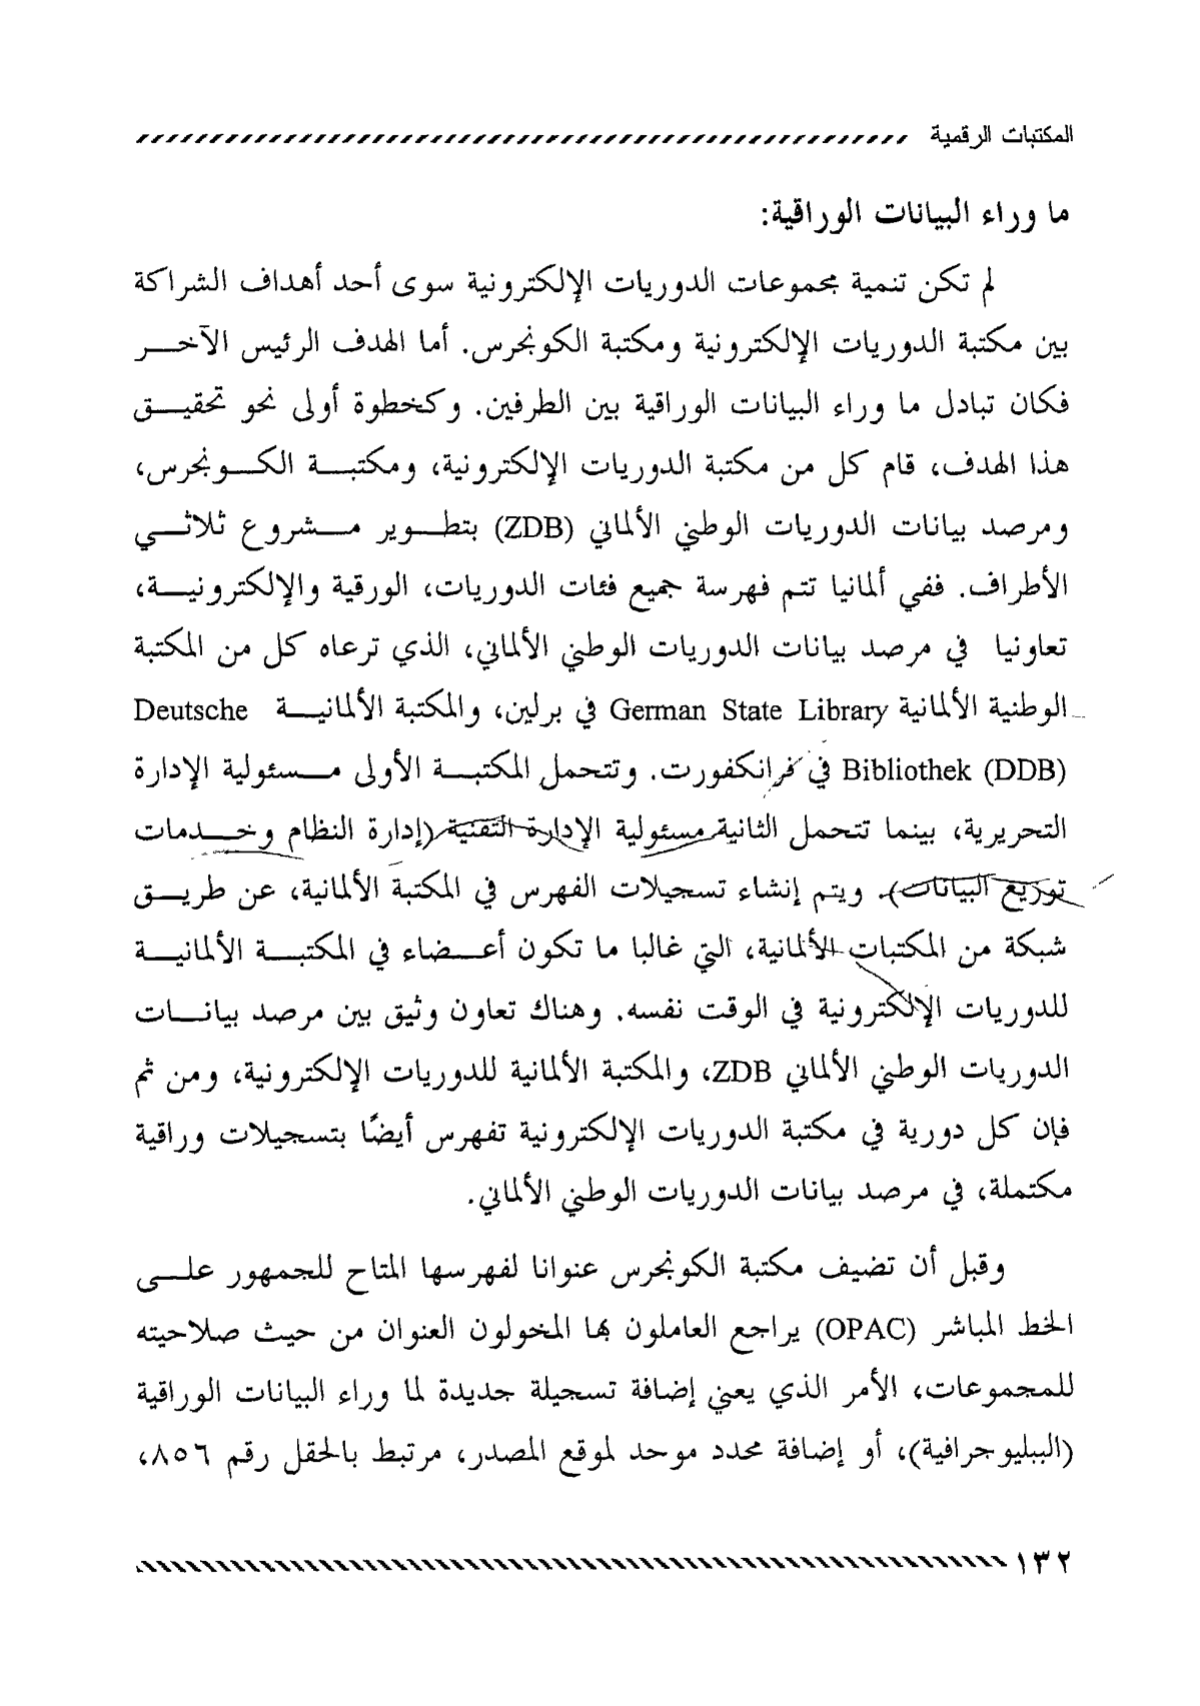 المكتبات الرقمية
ما وراء البيانات الوراقية:
لم تكن تنمية مجموعات الدوريات الإلكترونية سوى أحد أهداف الشراكة
بين مكتبة الدوريات الإلكترونية ومكتبة الكونجرس. أما الهدف الرئيس الآخر
فكان تبادل ما وراء البيانات الوراقية بين الطرفين. وكخطوة أولى نحو تحقيق
هذا الهدف، قام كل من مكتبة الدوريات الإلكترونية، ومكتبة الكونجرس،
ومرصد بيانات الدوريات الوطني الألماني (ZDB) بتطوير مشروع ثلاثي
الأطراف. ففي ألمانيا تتم فهرسة جميع فئات الدوريات، الورقية والإلكترونية،
تعاونيا في مرصد بيانات الدوريات الوطني الألماني، الذي ترعاه كل من المكتبة
الوطنية الألمانية German State Library في برلين، والمكتبة الألمانية Deutsche
Bibliothek (DDB) في فرانكفورت. وتتحمل المكتبة الأولى مسئولية الإدارة
التحريرية، بينما تتحمل الثانية مسئولية الإدارة التقنية (إدارة النظام وخدمات
توزيع البيانات). ويتم إنشاء تسجيلات الفهرس في المكتبة الألمانية، عن طريق
شبكة من المكتبات الألمانية، التي غالبا ما تكون أعضاء في المكتبة الألمانية
للدوريات الإلكترونية في الوقت نفسه. وهناك تعاون وثيق بين مرصد بيانات
الدوريات الوطني الألماني ZDB، والمكتبة الألمانية للدوريات الإلكترونية، ومن ثم
فإن كل دورية في مكتبة الدوريات الإلكترونية تفهرس أيضًا بتسجيلات وراقية
مكتملة، في مرصد بيانات الدوريات الوطني الألماني.
وقبل أن تضيف مكتبة الكونجرس عنوانا لفهرسها المتاح للجمهور على
الخط المباشر (OPAC) يراجع العاملون بها المخولون العنوان من حيث صلاحيته
للمجموعات، الأمر الذي يعني إضافة تسجيلة جديدة لما وراء البيانات الوراقية
(الببليوجرافية)، أو إضافة محدد موحد لموقع المصدر، مرتبط بالحقل رقم ٨٥٦،
١٣٢